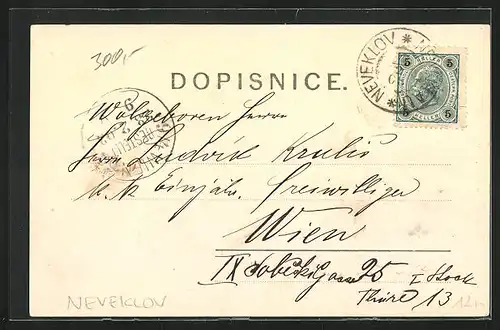 300,-
DOPISNICE.
NEVEKLOV
5 HELLER 5
Wolgeboren Herrn
Herrn Ludvík Krulis
k.k Einjähr. freiwilliger
Wien
IX Sobieskigasse 25 I Stock
Thüre 13
NEVEKLOV